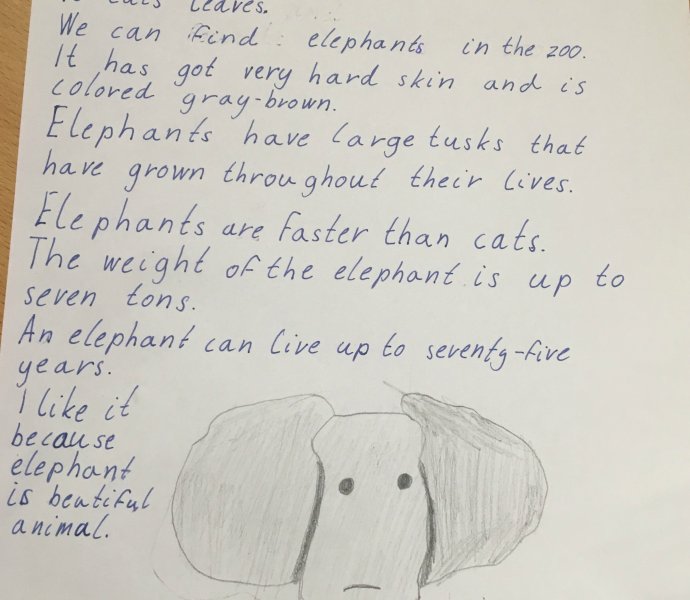 leaves.
We can find elephants in the zoo.
It has got very hard skin and is
colored gray-brown.
Elephants have large tusks that
have grown throughout their lives.
Elephants are faster than cats.
The weight of the elephant is up to
seven tons.
An elephant can live up to seventy-five
years.
I like it
because
elephant
is beutiful
animal.